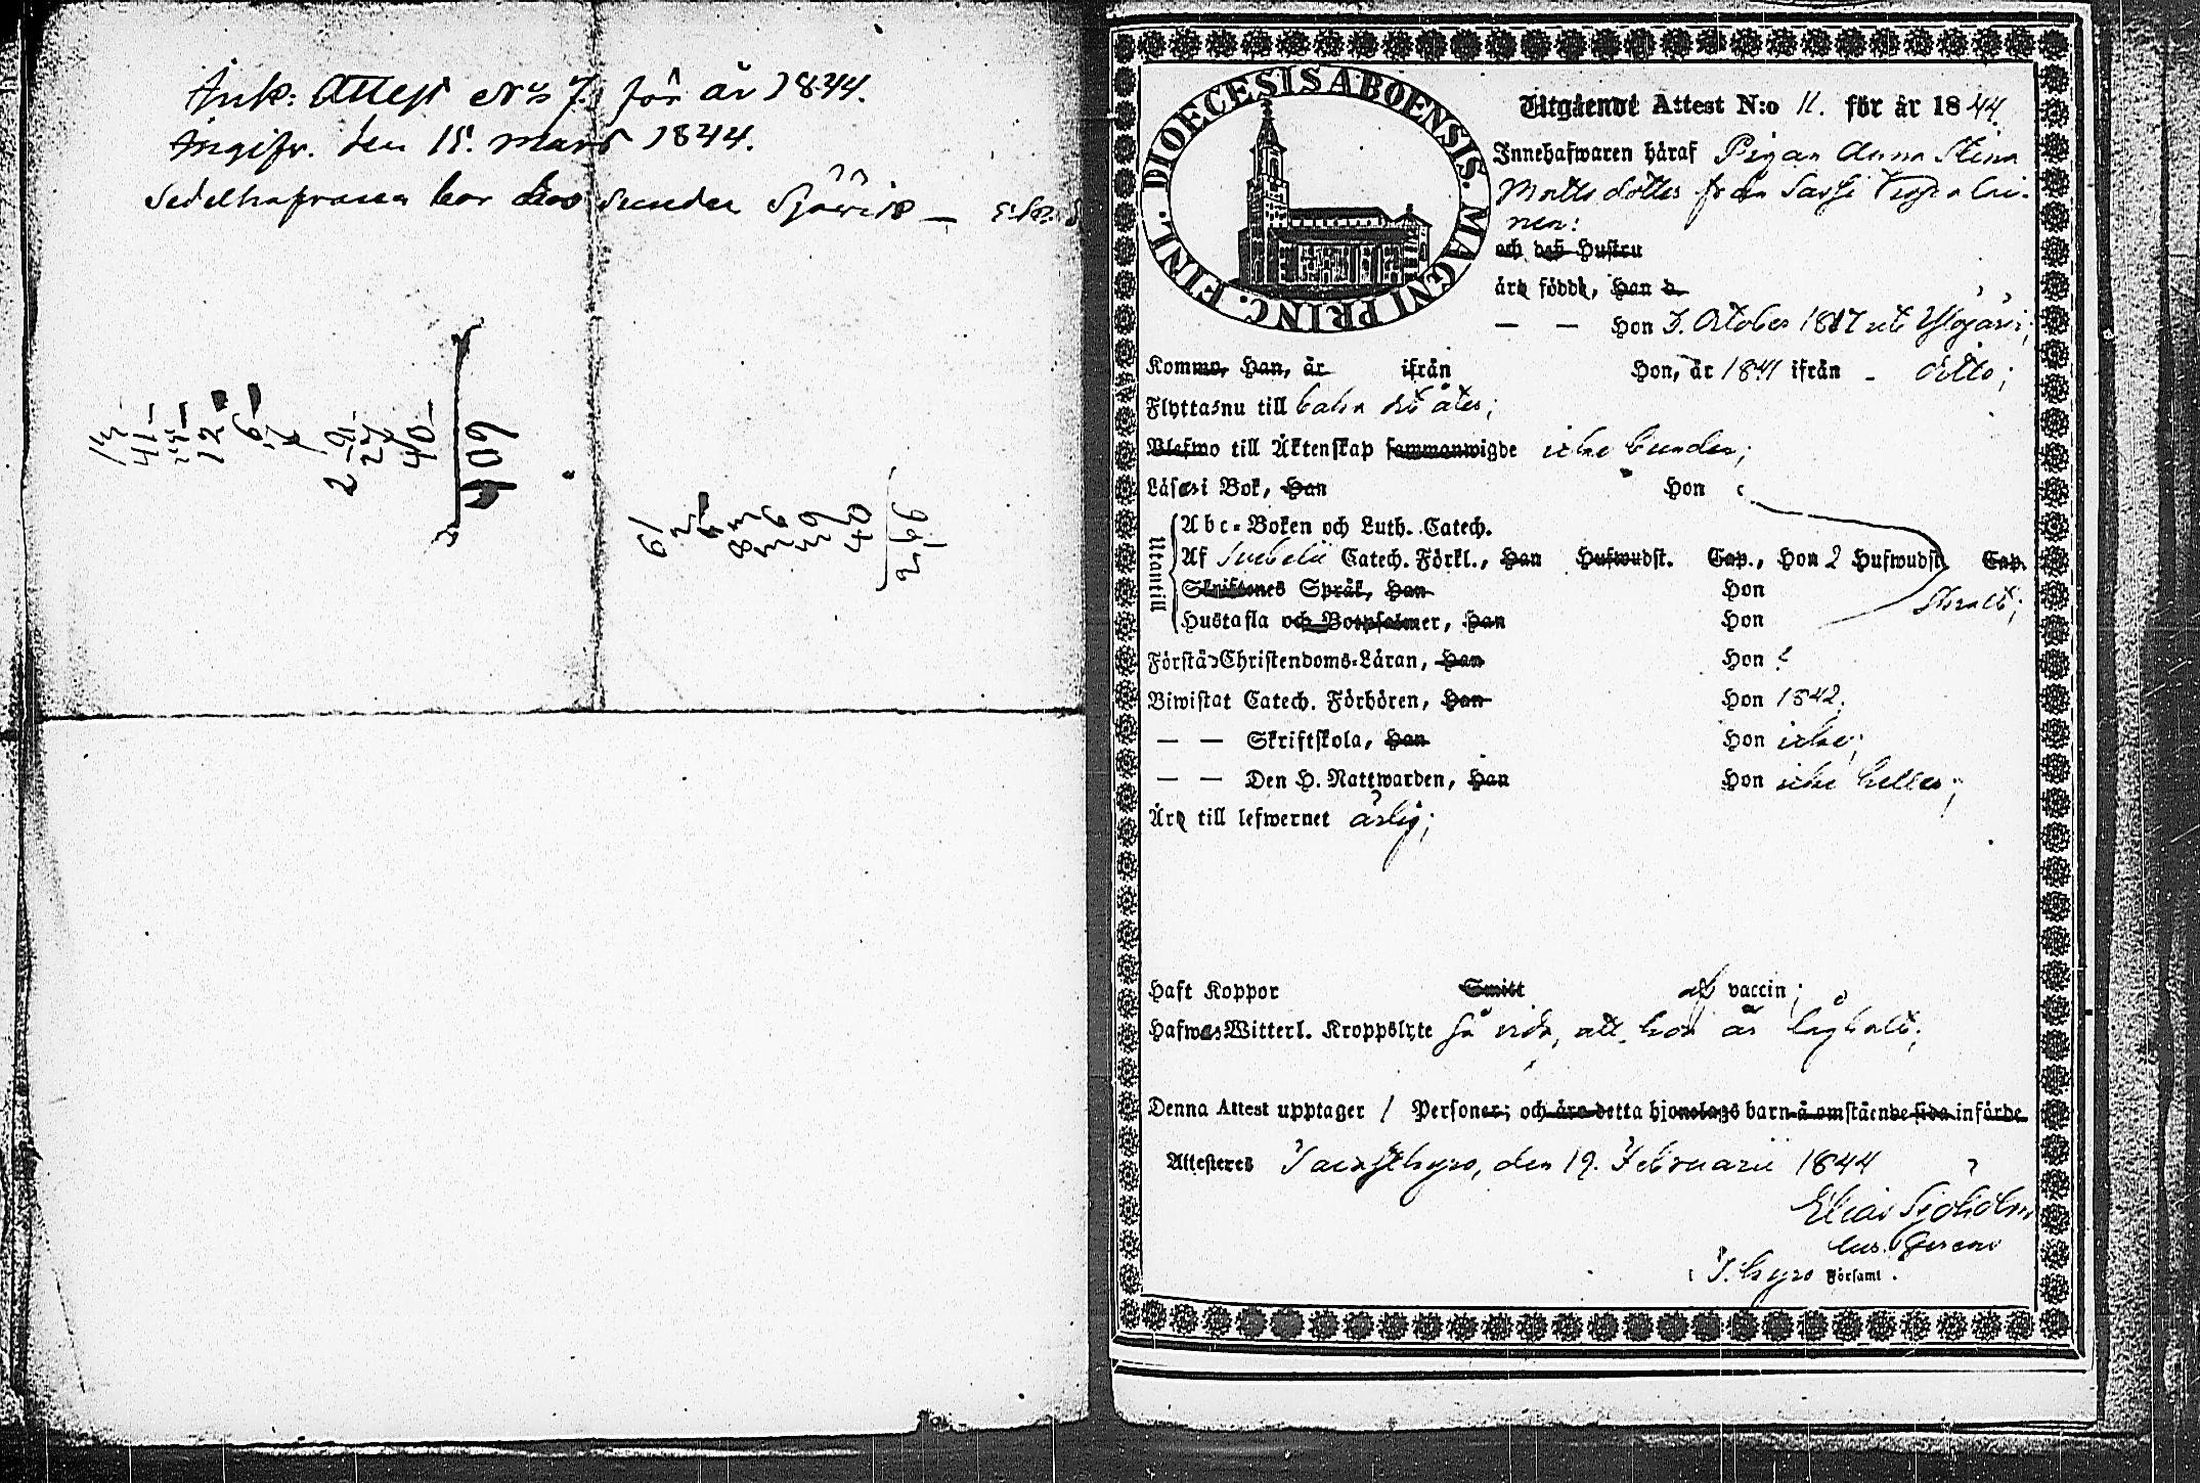 Ank: Attest No 7. för år 1844.
Ingifv. den 15. mars 1844.
Sedelhafvaren bor hos Sunden Sjövik —
409
292
DIOECESIS ABOENSIS. MAGNI PRINC. FINL.
Utgåendt Attest N:o 11. för år 1844.
Innehafwaren häraf Pigan Anna Stina
Matts dotter från Sarfi
nen:
och deß Hustru
äro födde, Han d.
— — Hon d. October 1817 uti Ylöjärvi;
Komme, Han, år ifrån Hon, år 1841 ifrån – ditto;
Flyttas nu till åter;
Blefwo till Äktenskap sammanwigde icke bunden;
Läsa i Bok, Han Hon
Utantill
Abc-Boken och Luth. Catech.
Af Svebelii Catech. Förkl., Han Hufwudst. Cap., Hon 2 Hufwudst. Cap.
Skriftenes Språk, Han Hon
Hustafla och Botpsalmer, Han Hon
Förstå Christendoms-Läran, Han Hon
Biwistat Catech. Förhören, Han Hon 1842.
— — Skriftskola, Han Hon icke;
— — Den H. Nattwarden, Han Hon icke heller;
Äro till lefwernet ärlig;
Haft Koppor Smitt af vaccin;
Hafwa Witterl. Kroppslyte så vida, att hon är låghalt;
Denna Attest upptager 1 Personer; och äro detta hjonelags barn å omstående sida införde
Attesteras Tavastkyro, den 19. Februarii 1844
Elias Sjöholm
i T. kyro Församl.